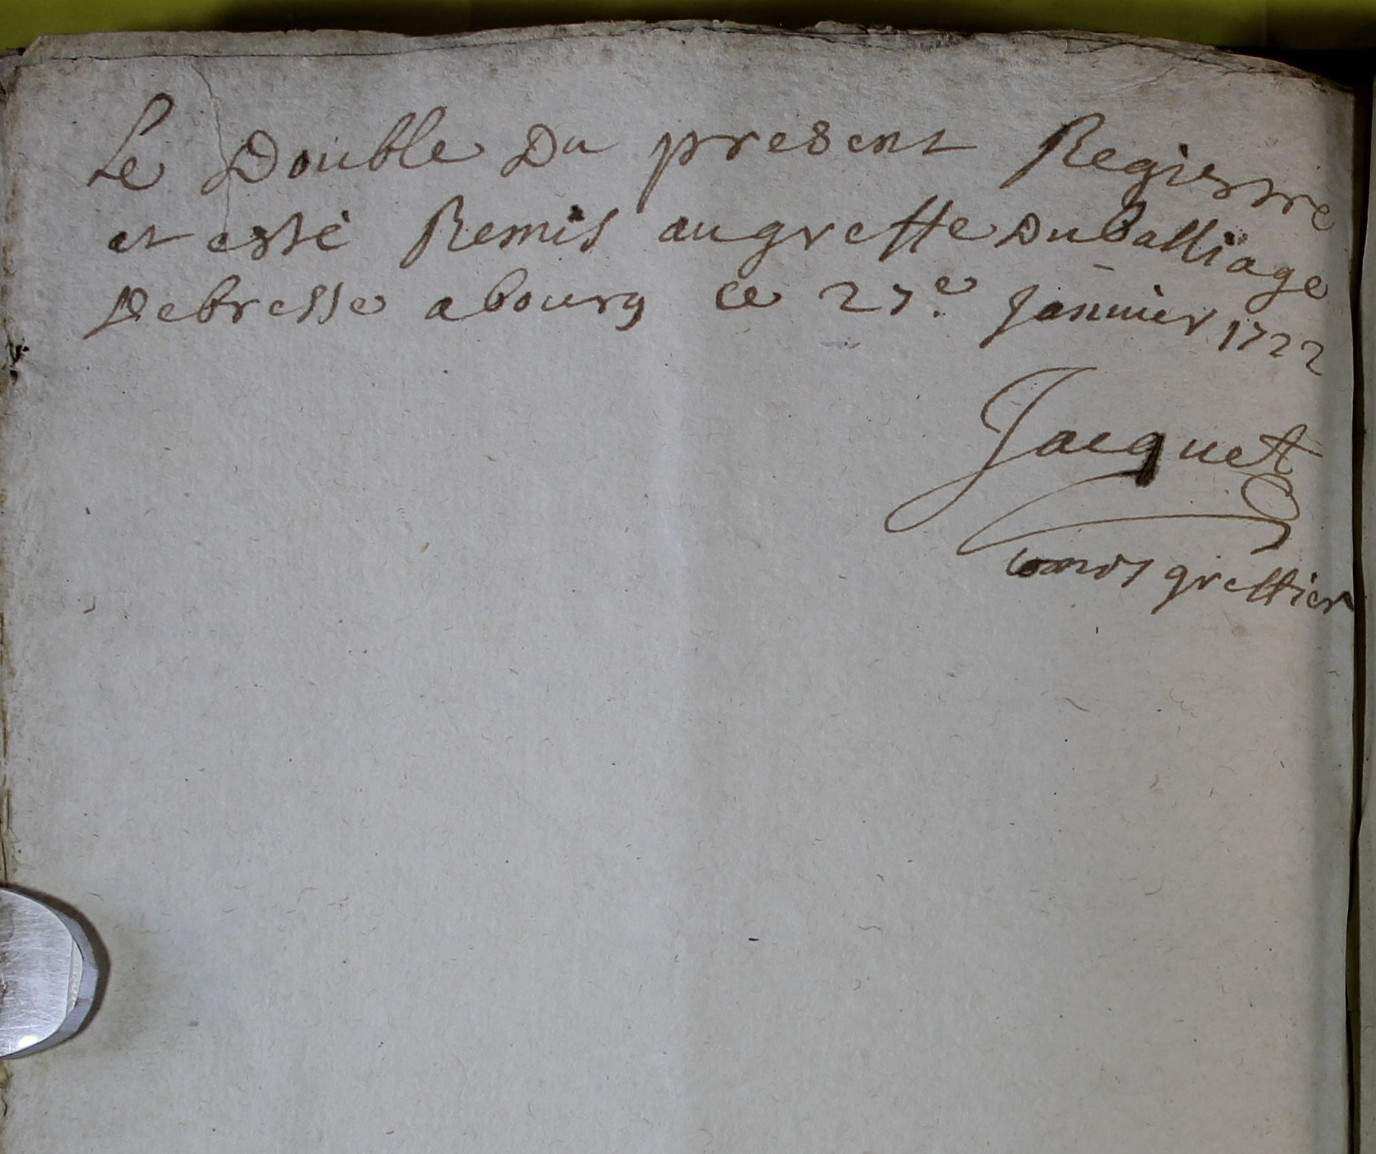 Le Double Du present Regisstre
et esté Remis au greffe Du balliage
De bresse a bourg ce 27.e Januier 1722
Jacquet
commis greffier